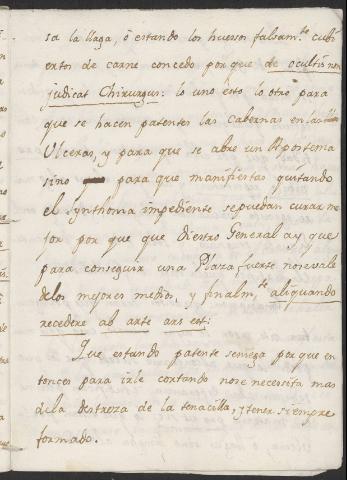 sa la llaga, ò estando los huesos falsam.te cubi
ertos de carne concedo por que de ocultis non
judicat Chirurgus: lo uno esto lo otro para
que se hacen patentes las cabernas en las
Ulceras, y para que se abre un Apostema
sino para que manifiestas quitando
el synthoma impediente se puedan curar me
jor por que que diestro General ay que
para conseguir una Plaza fuerte no se vale
de los mejores medios, y finalm.te aliquando
recedere ab arte ars est:
Que estando patente se niega por que en
tonces para irle cortando no se necesita mas
de la destreza de la tenacilla, y tener siempre
formado.